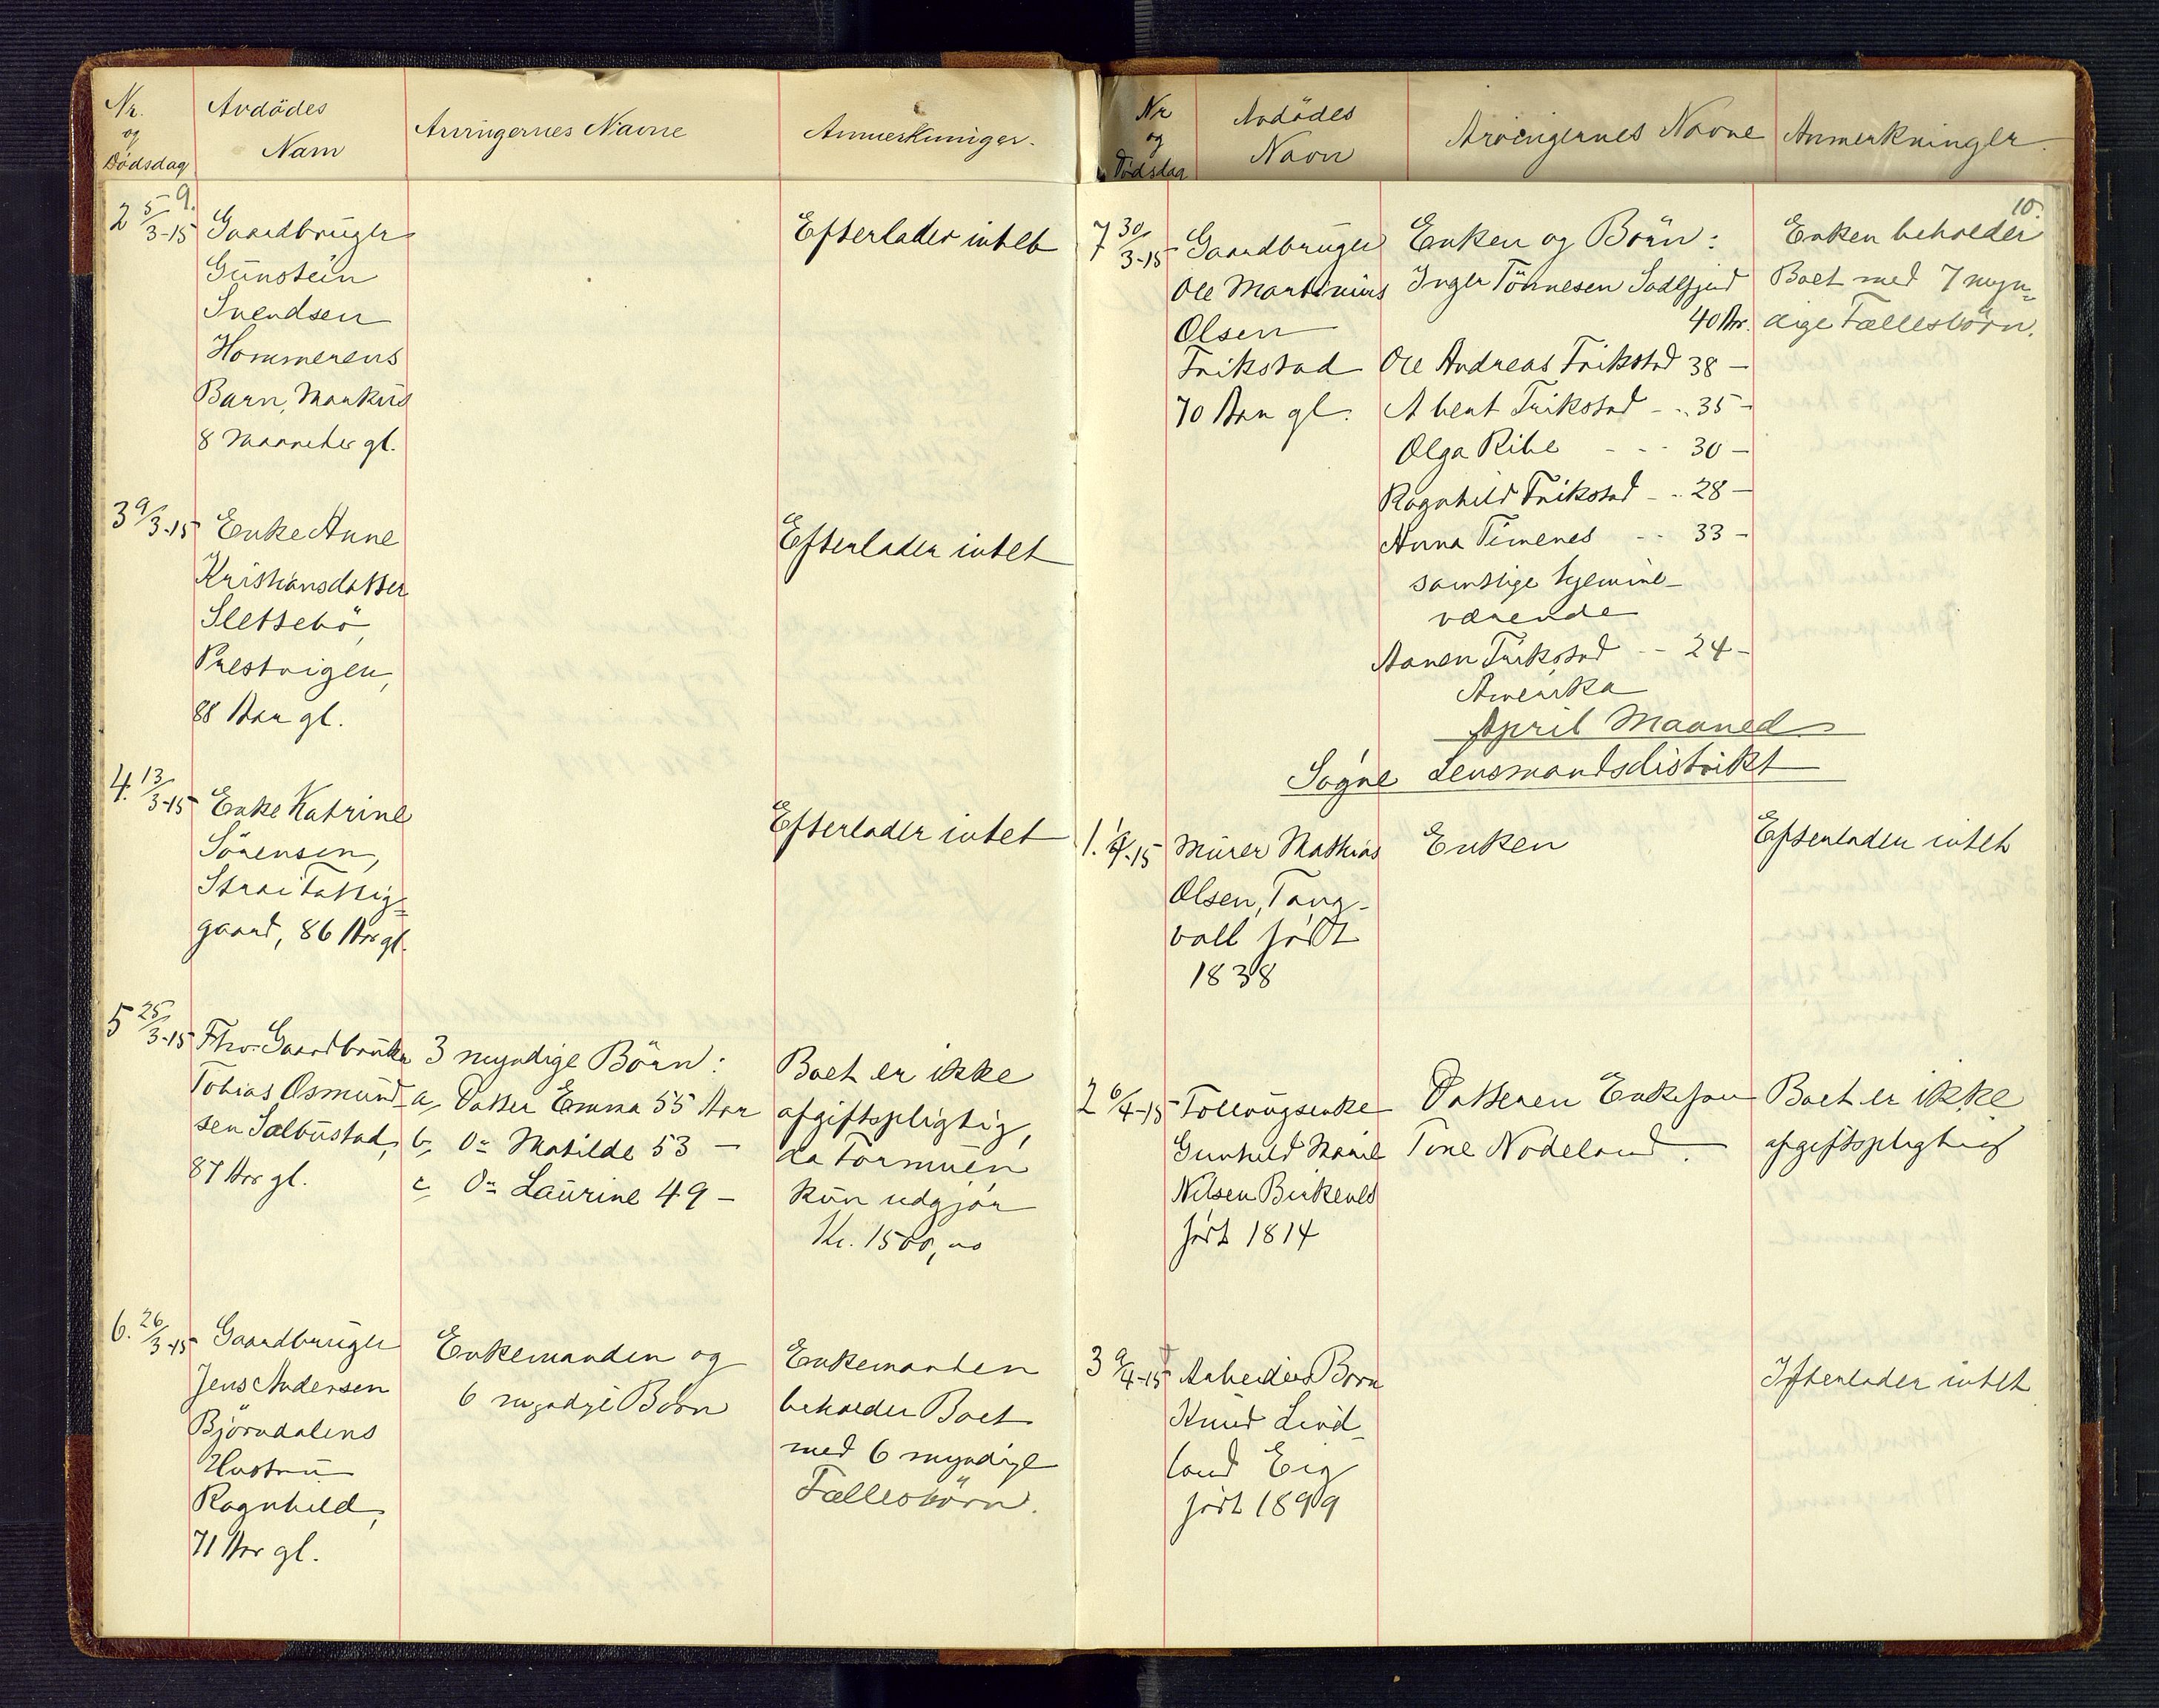 Nr. og Dödsdag
Avdödes Navn
Arvingernes Navne
Anmerkninger.
9.
2 5/3-15 Gaardbruger
Gunstein
Svendsen
Hommerens
Barn, Markus
8 Maaneder gl.
Efterlader intet
3 9/3-15 Enke Anne
Kristiansdatter
Slettebö,
Prestvigen,
88 Aar gl.
Efterlader intet
4. 13/3-15 Enke Katrine
Sörensen,
Strai Fattig=
gaard, 86 Aar gl.
Efterlader intet
5 25/3-15 Fhv. Gaardbruker
Tobias Osmund-
sen Salbustad,
87 Aar gl.
3 myndige Börn:
a, Datter Emma 55 Aar
b, Do Matilde 53 —
c, Do Laurine 49 —
Boet er ikke
afgiftspligtig,
da Formuen
kun udgjør
Kr. 1500,00
6. 26/3-15 Gaardbruger
Jens Andersen
Björndalens
Hustru
Ragnhild,
71 Aar gl.
Enkemanden og
6 myndige Börn
Enkemanden
beholder Boet
med 6 myndige
Fællesbörn.
Nr og Dödsdag
Avdödes Navn
Arvingernes Navne
Anmerkninger.
10.
7 30/3-15 Gaardbruger
Ole Martinius
Olsen
Frikstad
70 Aar gl.
Enken og Börn:
Inger Tönnesen
40 Ar.
Ole Andreas Frikstad 38 —
Frikstad - .. 35 -
Olga Ribe - - - 30 —
Ragnhild Frikstad - .. 28 —
Anna Timenes - - 33 -
samtlige hjemme-
værende
Aanen Frikstad - - 24 -
Amerika
Enken beholder
Boet med 7 myn=
dige Fællesbörn.
April Maaned
Søgne Lensmandsdistrikt
1. 1/4-15 Murer Mathias
Olsen, Tang-
vall født
1838
Enken
Efterlader intet
2 6/4-15
Gunhild Marie
Nilsen Birkenes
født 1814
Datteren Enkefru
Tine Nodeland.
Boet er ikke
afgiftspligtig
3 9/4-15 Arbeider Barn
Knud Lind-
land Eig
født 1899
Efterlader intet